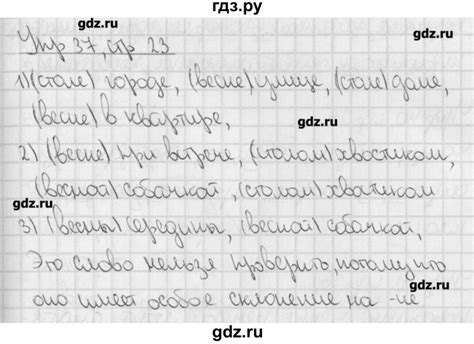 гдз.ру
gdz.ru
Упр 37, стр 23
gdz.ru
1) (столе) городе, (весне) улице, (столе) даче,
(весне) в квартире,
gdz.ru
2) (весне) при встрече, (столом) хвостиком,
(весной) собачкой, (столом) хвостиком
gdz.ru
gdz.ru
3) (весны) середины, (весной) собачкой,
gdz.ru
Это слово нельзя проверить, потому что
оно имеет особое склонение на -ие
gdz.ru